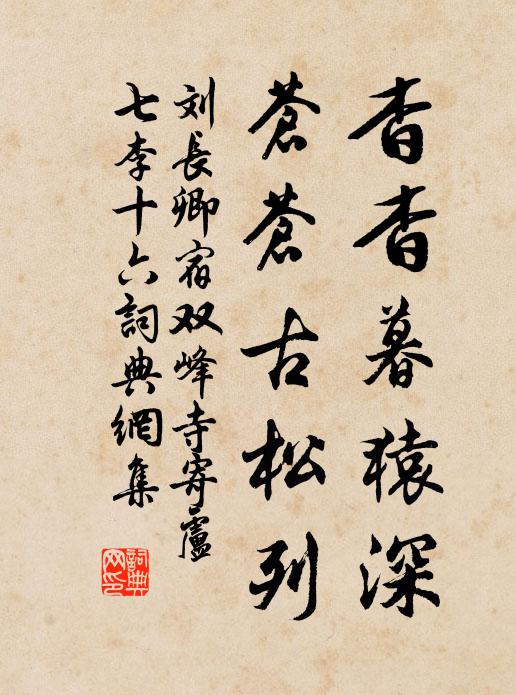 杳杳暮猿深
蒼蒼古松列
刘長卿宿双峰寺寄盧
七李十六詞典網集
詞典
网印